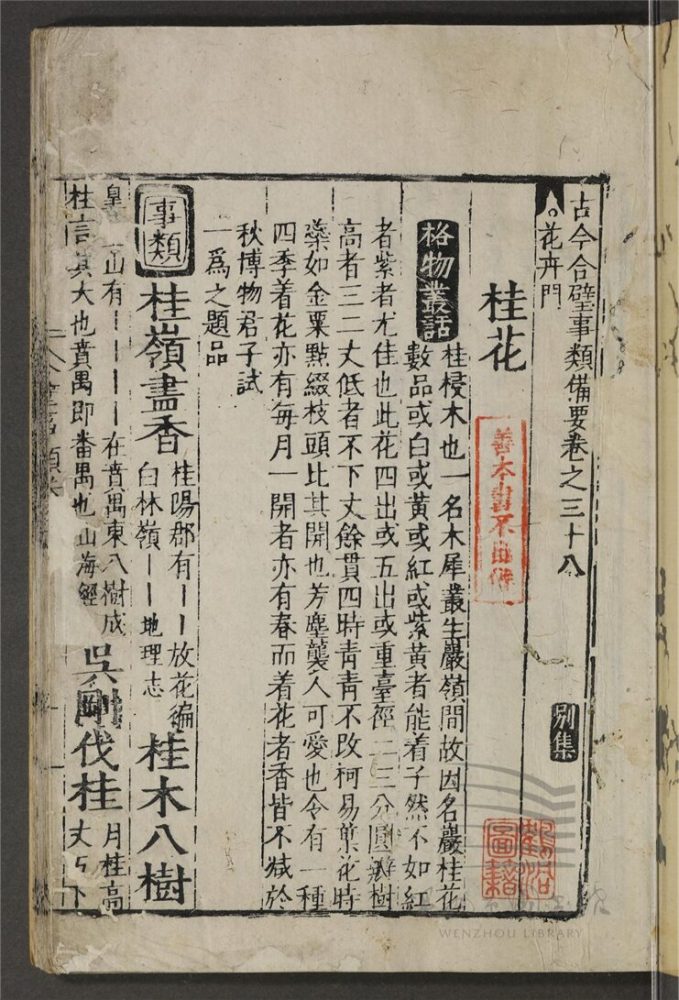 古今合璧事類備要卷之三十八
別集
花卉門
桂花
格物叢話
桂梫木也一名木犀叢生巖嶺間故因名巖桂花
數品或白或黃或紅或紫黃者能着子然不如紅
者紫者尤佳也此花四出或五出或重臺徑二三分圓瓣樹
高者三二丈低者不下丈餘貫四時青青不改柯易葉花時
蘂如金粟點綴枝頭比其開也芳塵襲人可愛也令有一種
四季着花亦有每月一開者亦有春而着花者香皆不減於
秋博物君子試
一爲之題品
事類
桂嶺晝香
桂陽郡有丨丨放花徧
白林嶺丨丨地理志
桂木八樹
皇
山有丨丨丨丨在賁禺東八樹成
桂言其大也賁禺即番禺也山海經
吳剛伐桂
月桂高
丈丂下
善本書不出借
圖籍
WENZHOU LIBRARY